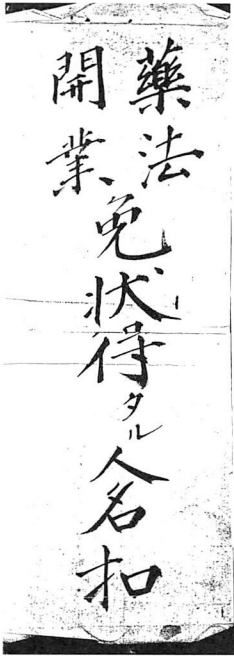 藥法
開業
免状得タル人名扣